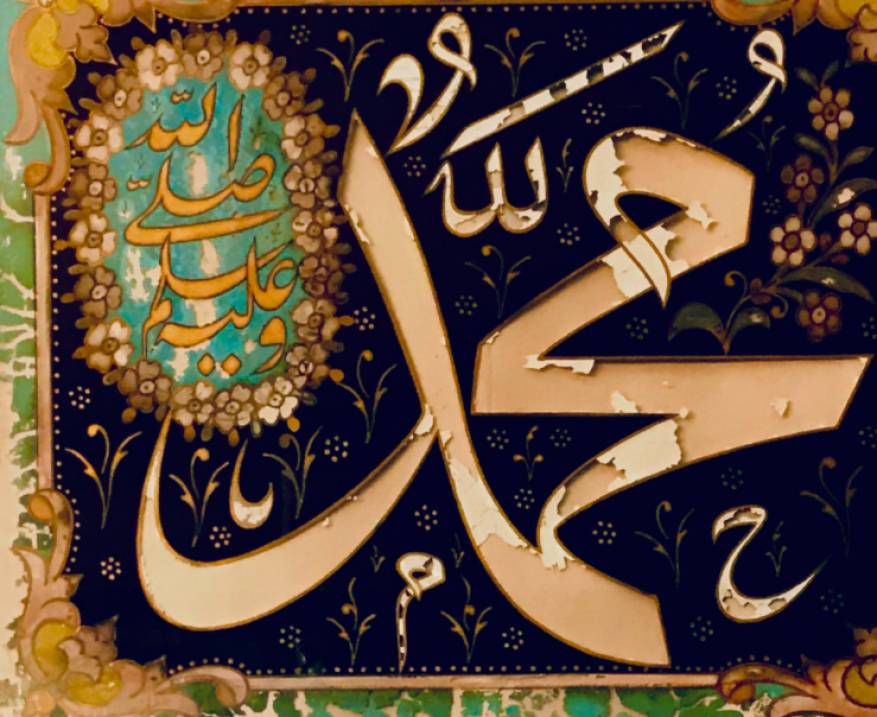 مُحَمَّدٌ
صلى الله
عليه وسلم